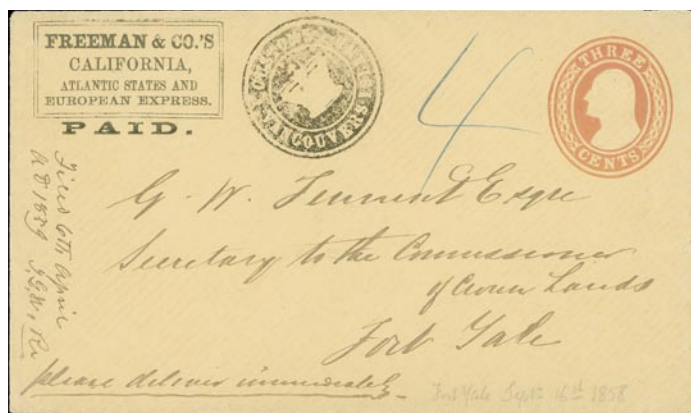 FREEMAN & CO.'S
CALIFORNIA,
ATLANTIC STATES AND
EUROPEAN EXPRESS.
PAID.
VANCOUVERS
4
THREE
CENTS
G. W. Tennent Esqre
Secretary to the Commissioner
of Crown Lands
Fort Yale
please deliver immediately
Filed 6th April
AD 1859
Fort Yale Sept 16th 1858